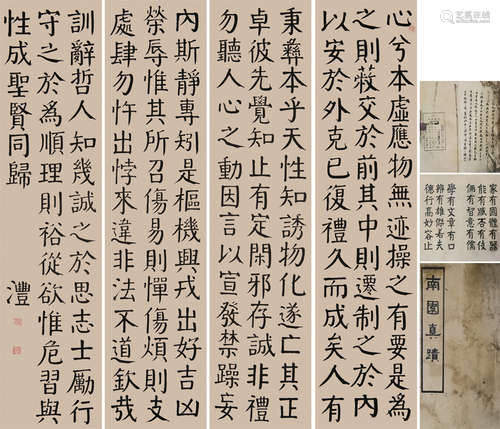 心兮本虛應物無迹操之有要是為
之則蔽交於前其中則遷制之於內
以安於外克已復禮久而成矣人有
秉彝本乎天性知誘物化遂亡其正
卓彼先覺知止有定閑邪存誠非禮
勿聽人心之動因言以宣發禁躁妄
內斯靜專矧是樞機興戎出好吉凶
榮辱惟其所召傷易則憚傷煩則支
處肆勿忤出悖來違非法不道欽哉
訓辭哲人知幾誠之於思志士勵行
守之於為順理則裕從欲惟危習與
性成聖賢同歸
灃
家有國體有器
能有臧否有伎
倆有智意有儒
學有文章有口
辨有雄傑若夫
德行高妙容止
南園真蹟